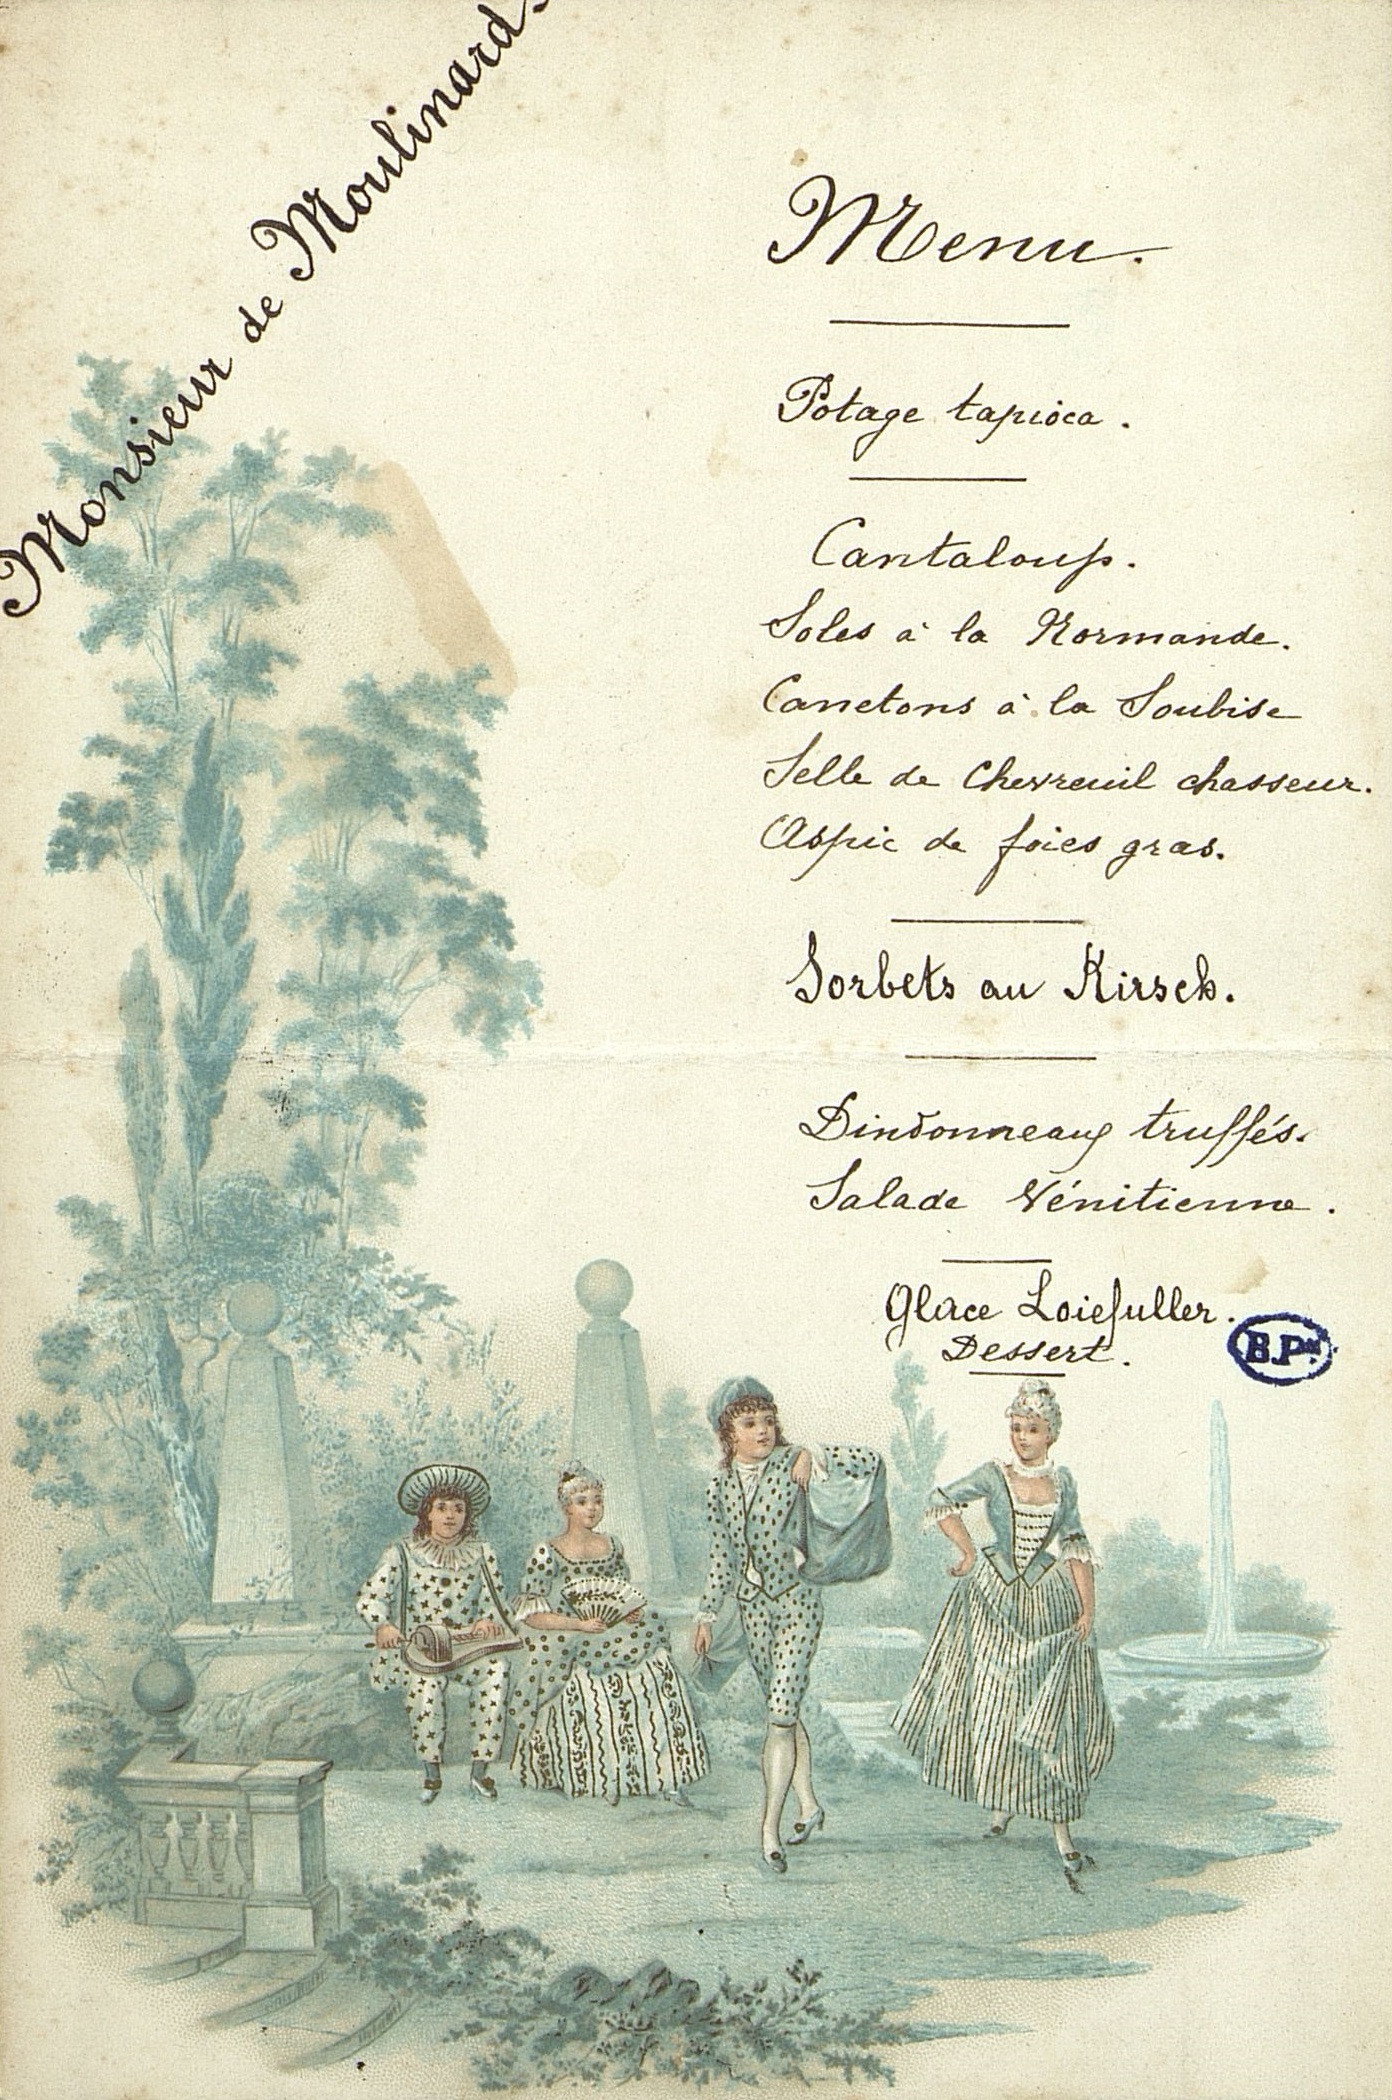 Monsieur de Moulinard.
Menu.
Potage tapioca.
Cantaloup.
Soles à la Normande.
Canetons à la Soubise
Selle de Chevreuil chasseur.
Aspic de foies gras.
Sorbets au Kirsch.
Dindonneaux truffés.
Salade Vénitienne.
Glace Loiefuller.
Dessert.
B.Pn.